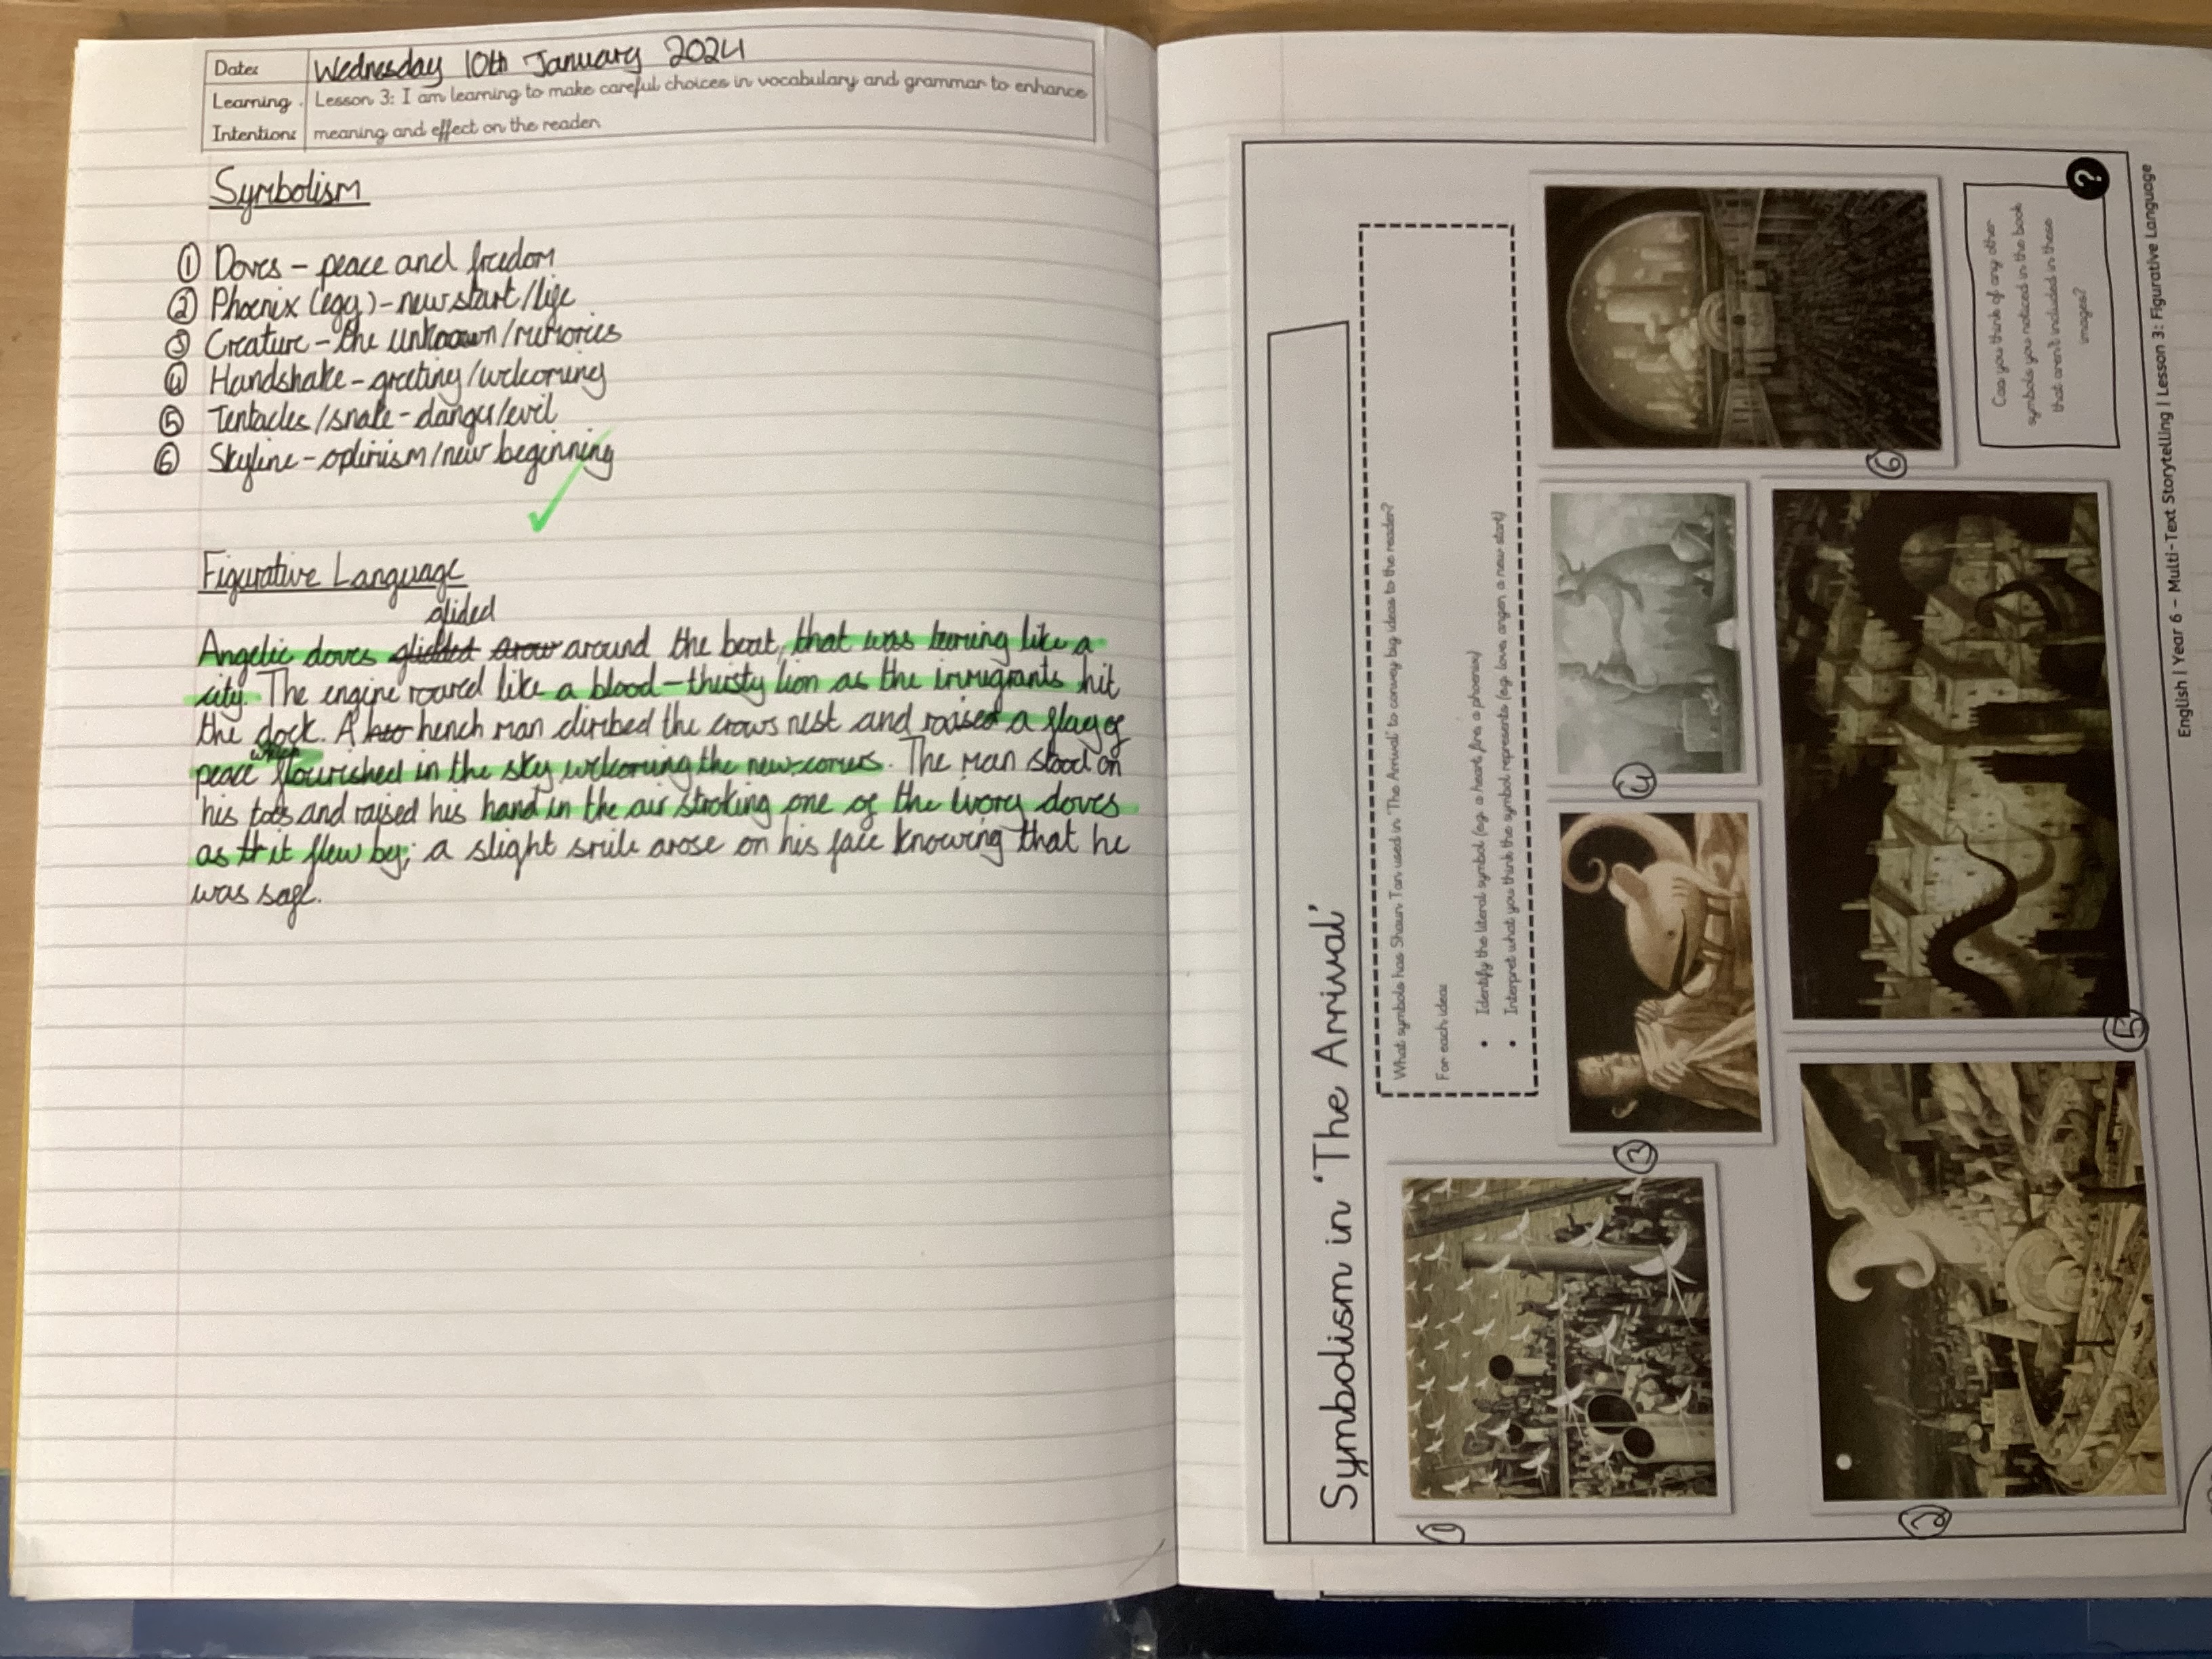 Date:
Wednesday 10th January 2024
Learning
Intention:
Lesson 3: I am learning to make careful choices in vocabulary and grammar to enhance
meaning and effect on the reader.
Symbolism
① Doves - peace and freedom
② Phoenix (egg) - new start/life
③ Creature - the unknown/memories
④ Handshake - greeting/welcoming
⑤ Tentacles/snake - danger/evil
⑥ Skyline - optimism/new beginning
Figurative Language
glided
Angelic doves around the boat, that was like a
city. The engine roared like a blood-thirsty lion as the immigrants hit
the dock. A hench man climbed the crows nest and raised a flag of
which
peace flourished in the sky welcoming the new-comers. The man stood on
his toes and raised his hand in the air stroking one of the ivory doves
as it flew by; a slight smile arose on his face knowing that he
was safe.
Symbolism in 'The Arrival'
What symbols has Shaun Tan used in 'The Arrival' to convey big ideas to the reader?
For each idea:
• Identify the literal symbol (e.g. a heart, fire, a phoenix)
• Interpret what you think the symbol represents (e.g. love, anger, a new start)
①
②
③
④
⑤
⑥
?
Can you think of any other
symbols you noticed in the book
that aren't included in these
images?
English | Year 6 – Multi-Text Storytelling | Lesson 3: Figurative Language